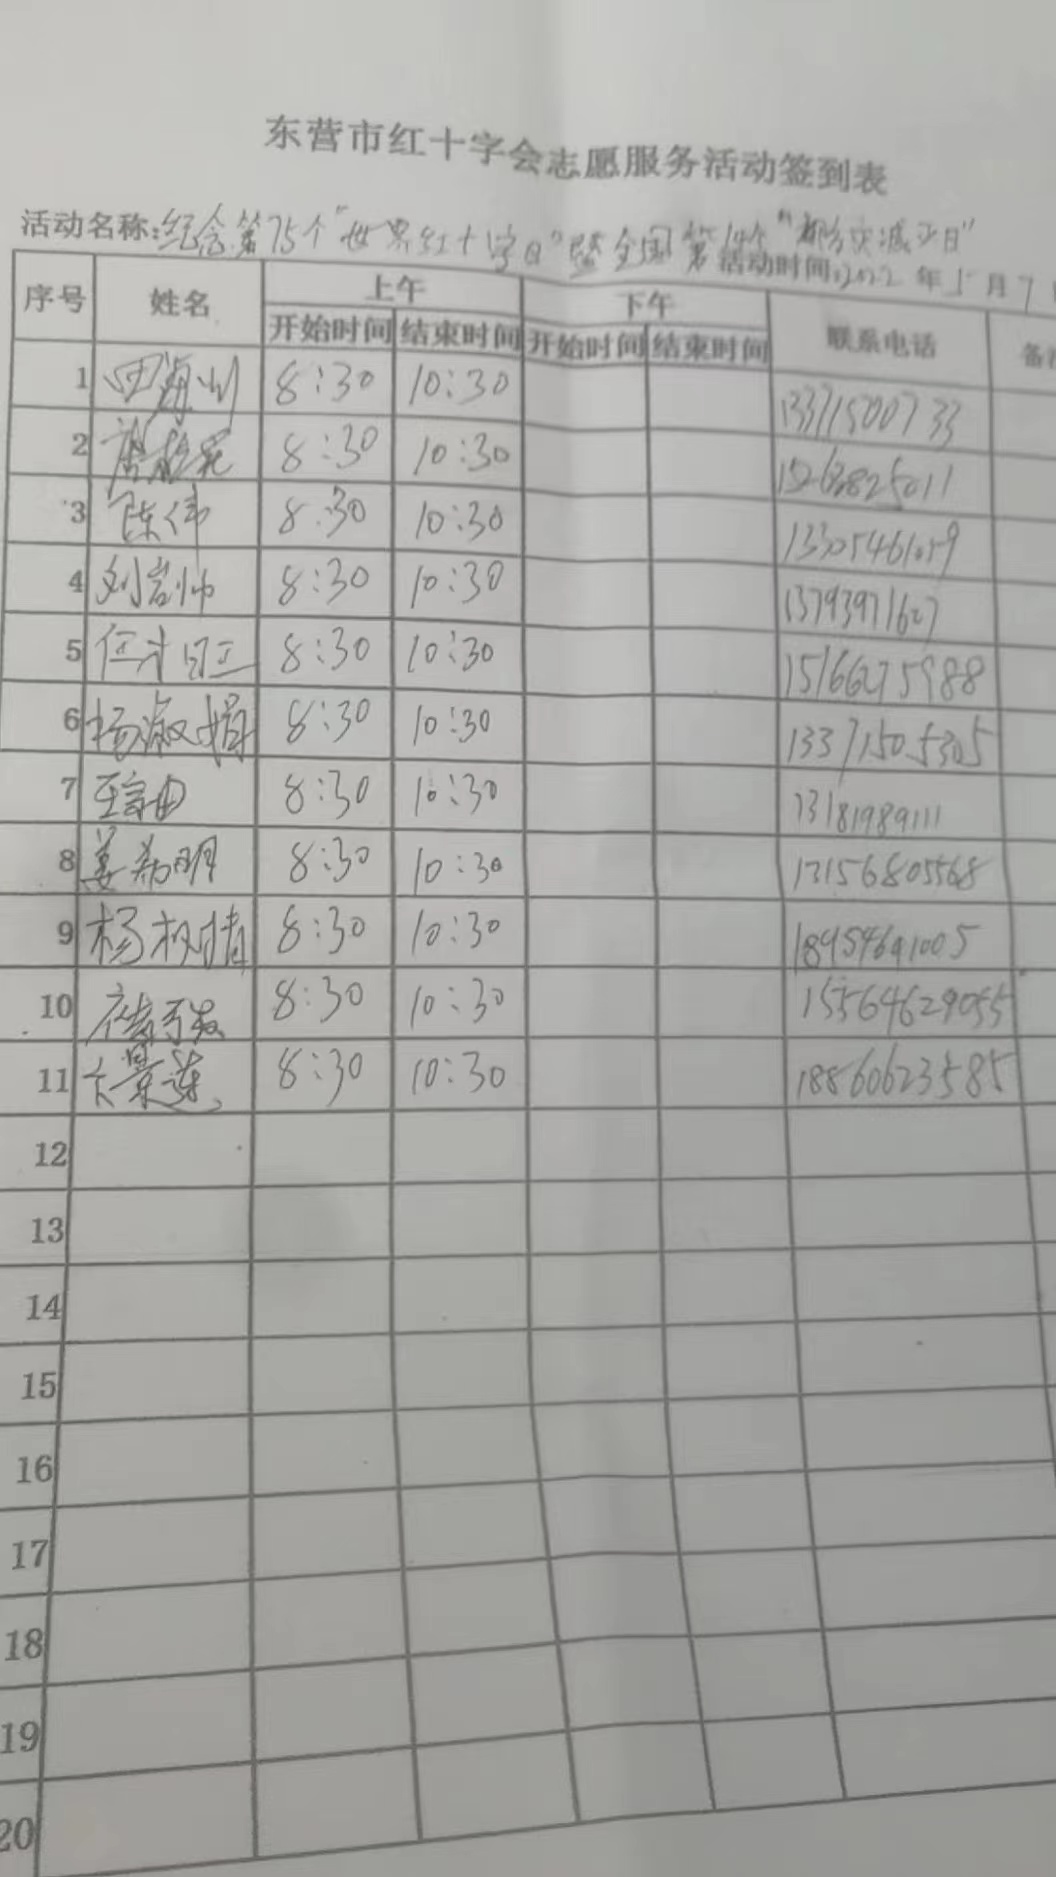 东营市红十字会志愿服务活动签到表
活动名称:纪念第75个"世界红十字日"暨全国第14个"防灾减灾日"
活动时间:2022年5月7
序号 姓名 上午 下午 联系电话 备注
开始时间 结束时间 开始时间 结束时间
1 8:30 10:30 13371500733
2 8:30 10:30 15263825011
3 陈伟 8:30 10:30 13305461059
4 刘岩帅 8:30 10:30 13793971607
5 8:30 10:30 15166275988
6 杨淑娟 8:30 10:30 13371505305
7 8:30 10:30 13181989111
8 姜利明 8:30 10:30
9 杨权靖 8:30 10:30 18954691005
10 8:30 10:30 15564629055
11 卞景莲 8:30 10:30 18860623585
12
13
14
15
16
17
18
19
20